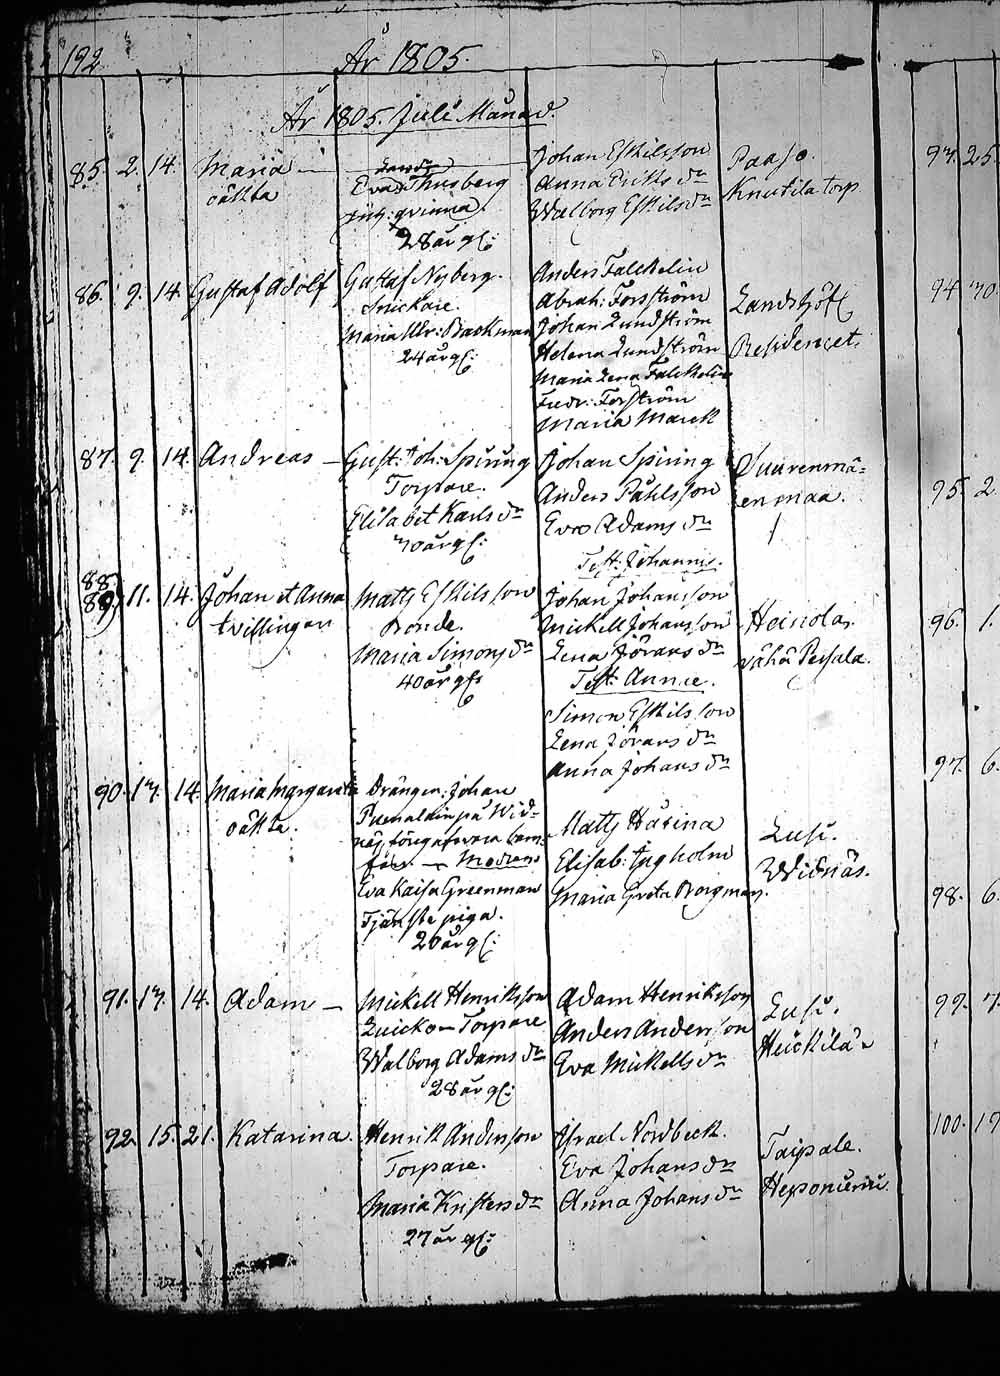 192
År 1805.
År 1805. Juli Månad.
85. 2. 14. Maria —
oäkta
Eva Thusberg
qvinna
28 år gl:
Johan Eskilsson
Anna Eriks dr
Walborg Eskils dr
Paaso.
Knutila torp
86. 9. 14. Gustaf Adolf
Gustaf Nyberg.
Snickare.
Maria Ulr: Backman
24 år gl:
Anders Falckelin
Abrah: Forsström
Johan Lundström
Helena Lundström
Maria Lena Falckelin
Fredr: Forsström
Maria Marck
Landshöf
Residencet.
87. 9. 14. Andreas —
Gust: Joh: Spiring
Torpare.
Elisabet Karls dr
70 år gl:
Johan Spiring
Anders Påhlsson
Eva Adams dr
Suurenmä=
enmaa.
88.
89) 11. 14. Johan et Anna
tvillingar
Matts Eskilsson
Bonde.
Maria Simons dr
40 år gl:
Test: Johannis.
Johan Johansson
Mickell Johansson
Lena Jörans dr
Test: Annæ.
Simon Eskilsson
Lena Jörans dr
Anna Johans dr
Heinola.
vähä Persala.
90. 17. 14. Maria Margareta
oäkta.
Drängen Johan
på Wid=
näs
Modren
Eva Kaisa Greenman
Tjänste piga.
20 år gl:
Matts Härina
Elisab: Ingholm
Maria Greta Borgman.
Lusi.
Widnäs.
91. 17. 14. Adam —
Mickell Henriksson
Torpare
Walborg Adams dr
28 år gl:
Adam Henriksson
Anders Andersson
Eva Mickells dr
Lusi.
Heickilä
92. 15. 21. Katarina.
Henrik Andersson
Torpare.
Maria Kristers dr
27 år gl:
Israel Nordbeck.
Eva Johans dr
Anna Johans dr
Taipale.
Heponiemi.
97. 25.
94. 70.
95. 2.
96. 1.
97. 6.
98. 6.
99. 7.
100. 17